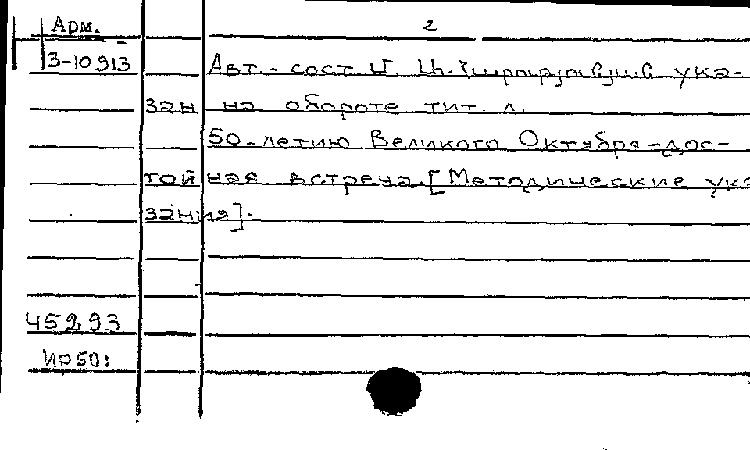 Арм. 2
3-10913 Авт.-сост. Ա. ука-
зан на обороте тит. л.
50-летию Великого Октября - дос-
тойная встреча. [Методические ука
зания].
45293